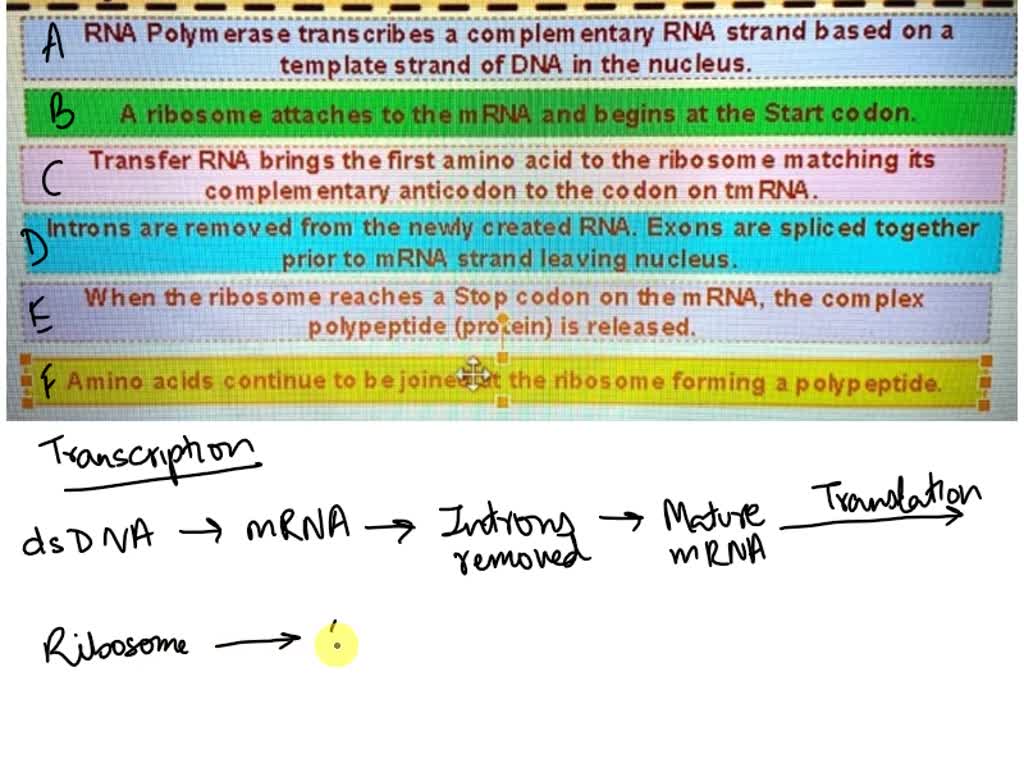 A RNA Polymerase transcribes a complementary RNA strand based on a
template strand of DNA in the nucleus.
B A ribosome attaches to the mRNA and begins at the Start codon.
C Transfer RNA brings the first amino acid to the ribosome matching its
complementary anticodon to the codon on tmRNA.
D Introns are removed from the newly created RNA. Exons are spliced together
prior to mRNA strand leaving nucleus.
E When the ribosome reaches a Stop codon on the mRNA, the complex
polypeptide (protein) is released.
F Amino acids continue to be joined the ribosome forming a polypeptide.
Transcription
dsDNA → mRNA → Introns removed → Mature mRNA Translation →
Ribosome →